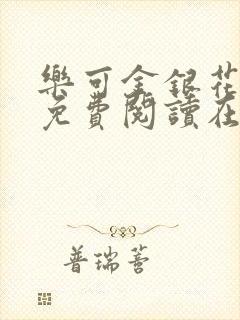 樂可金銀花
免費閱讀在
普瑞薈